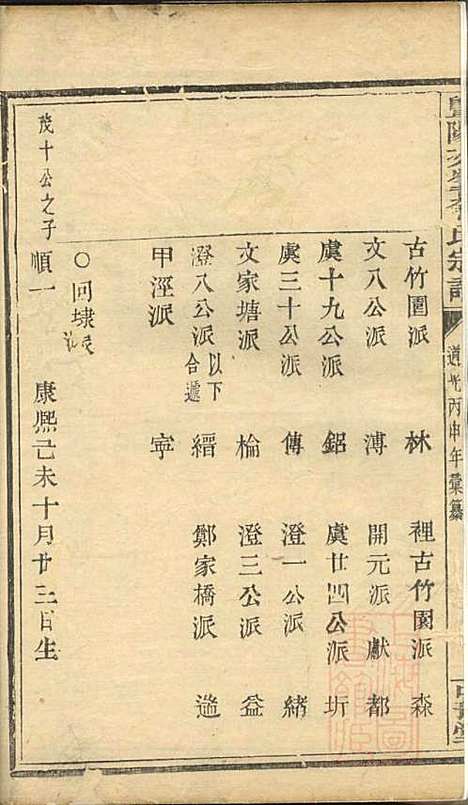 道光丙申年彙纂
古竹園派 林 裡古竹園派 森
文八公派 溥 開元派 獻 都
虞十九公派 鋁 虞廿四公派 圻
虞三十公派 傳 澄一公派 緒
文家塘派 棆 澄三公派 益
澄八公派 以下合遞 縉 鄭家橋派
甲涇派 寕
〇回埭派
茂十公之子 順一 康熙己未十月廿三日生